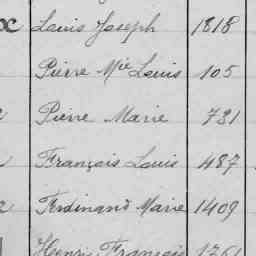 Louis Joseph 1818
Pierre Mie Louis 105
Pierre Marie 731
François Louis 487
Ferdinand Marie 1409
Henri François 1761